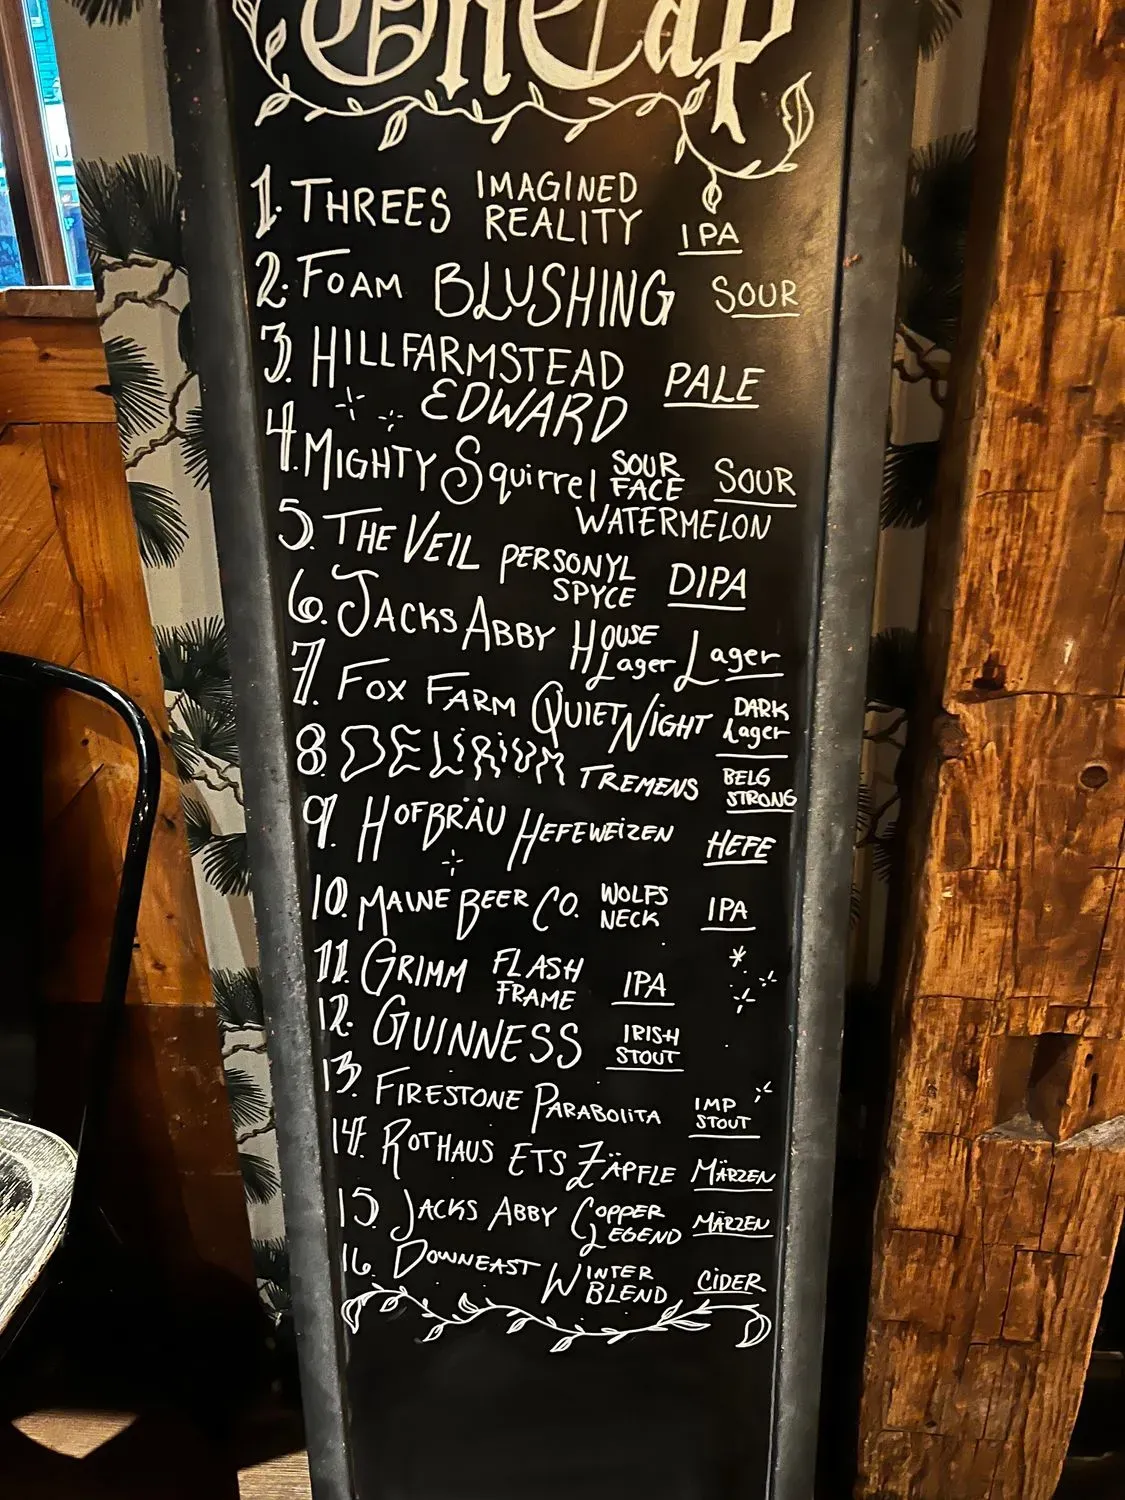 On Tap
1. THREES IMAGINED REALITY IPA
2. FOAM BLUSHING SOUR
3. HILLFARMSTEAD EDWARD PALE
4. MIGHTY Squirrel SOUR FACE WATERMELON SOUR
5. THE VEIL PERSONYL SPYCE DIPA
6. JACKS ABBY HOUSE Lager Lager
7. FOX FARM QUIET NIGHT DARK Lager
8. DELIRIUM TREMENS BELG STRONG
9. HOFBRÄU HEFEWEIZEN HEFE
10. MAINE BEER CO. WOLFS NECK IPA
11. GRIMM FLASH FRAME IPA
12. GUINNESS IRISH STOUT
13. FIRESTONE PARABOLITA IMP STOUT
14. ROTHAUS ETS ZÄPFLE MÄRZEN
15. JACKS ABBY COPPER LEGEND MÄRZEN
16. DOWNEAST WINTER BLEND CIDER